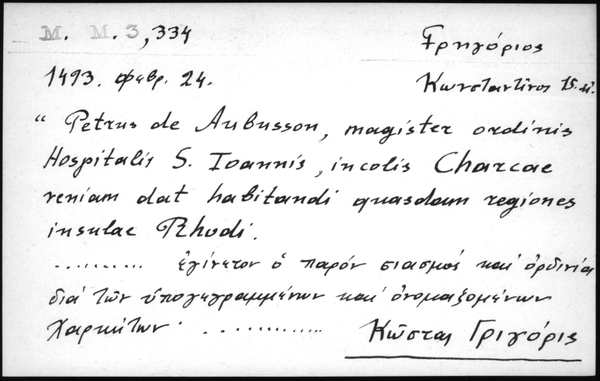 M. M. 3, 334
Γρηγόριος
1493. Φεβρ. 24.
Κωνσταντίνος 15.
“ Petrus de Aubusson, magister ordinis
Hospitalis S. Ioannis, incolis Charcae
veniam dat habitandi quasdam regiones
insulae Rhodi.
.......... ἐγίνετον ὁ παρόν σιασμός καί ὀρδινία
διά τῶν ὑπογεγραμμένων καί ὀνομαζομένων
Χαρκίτων ..............
Κῶστας Γριγόρις